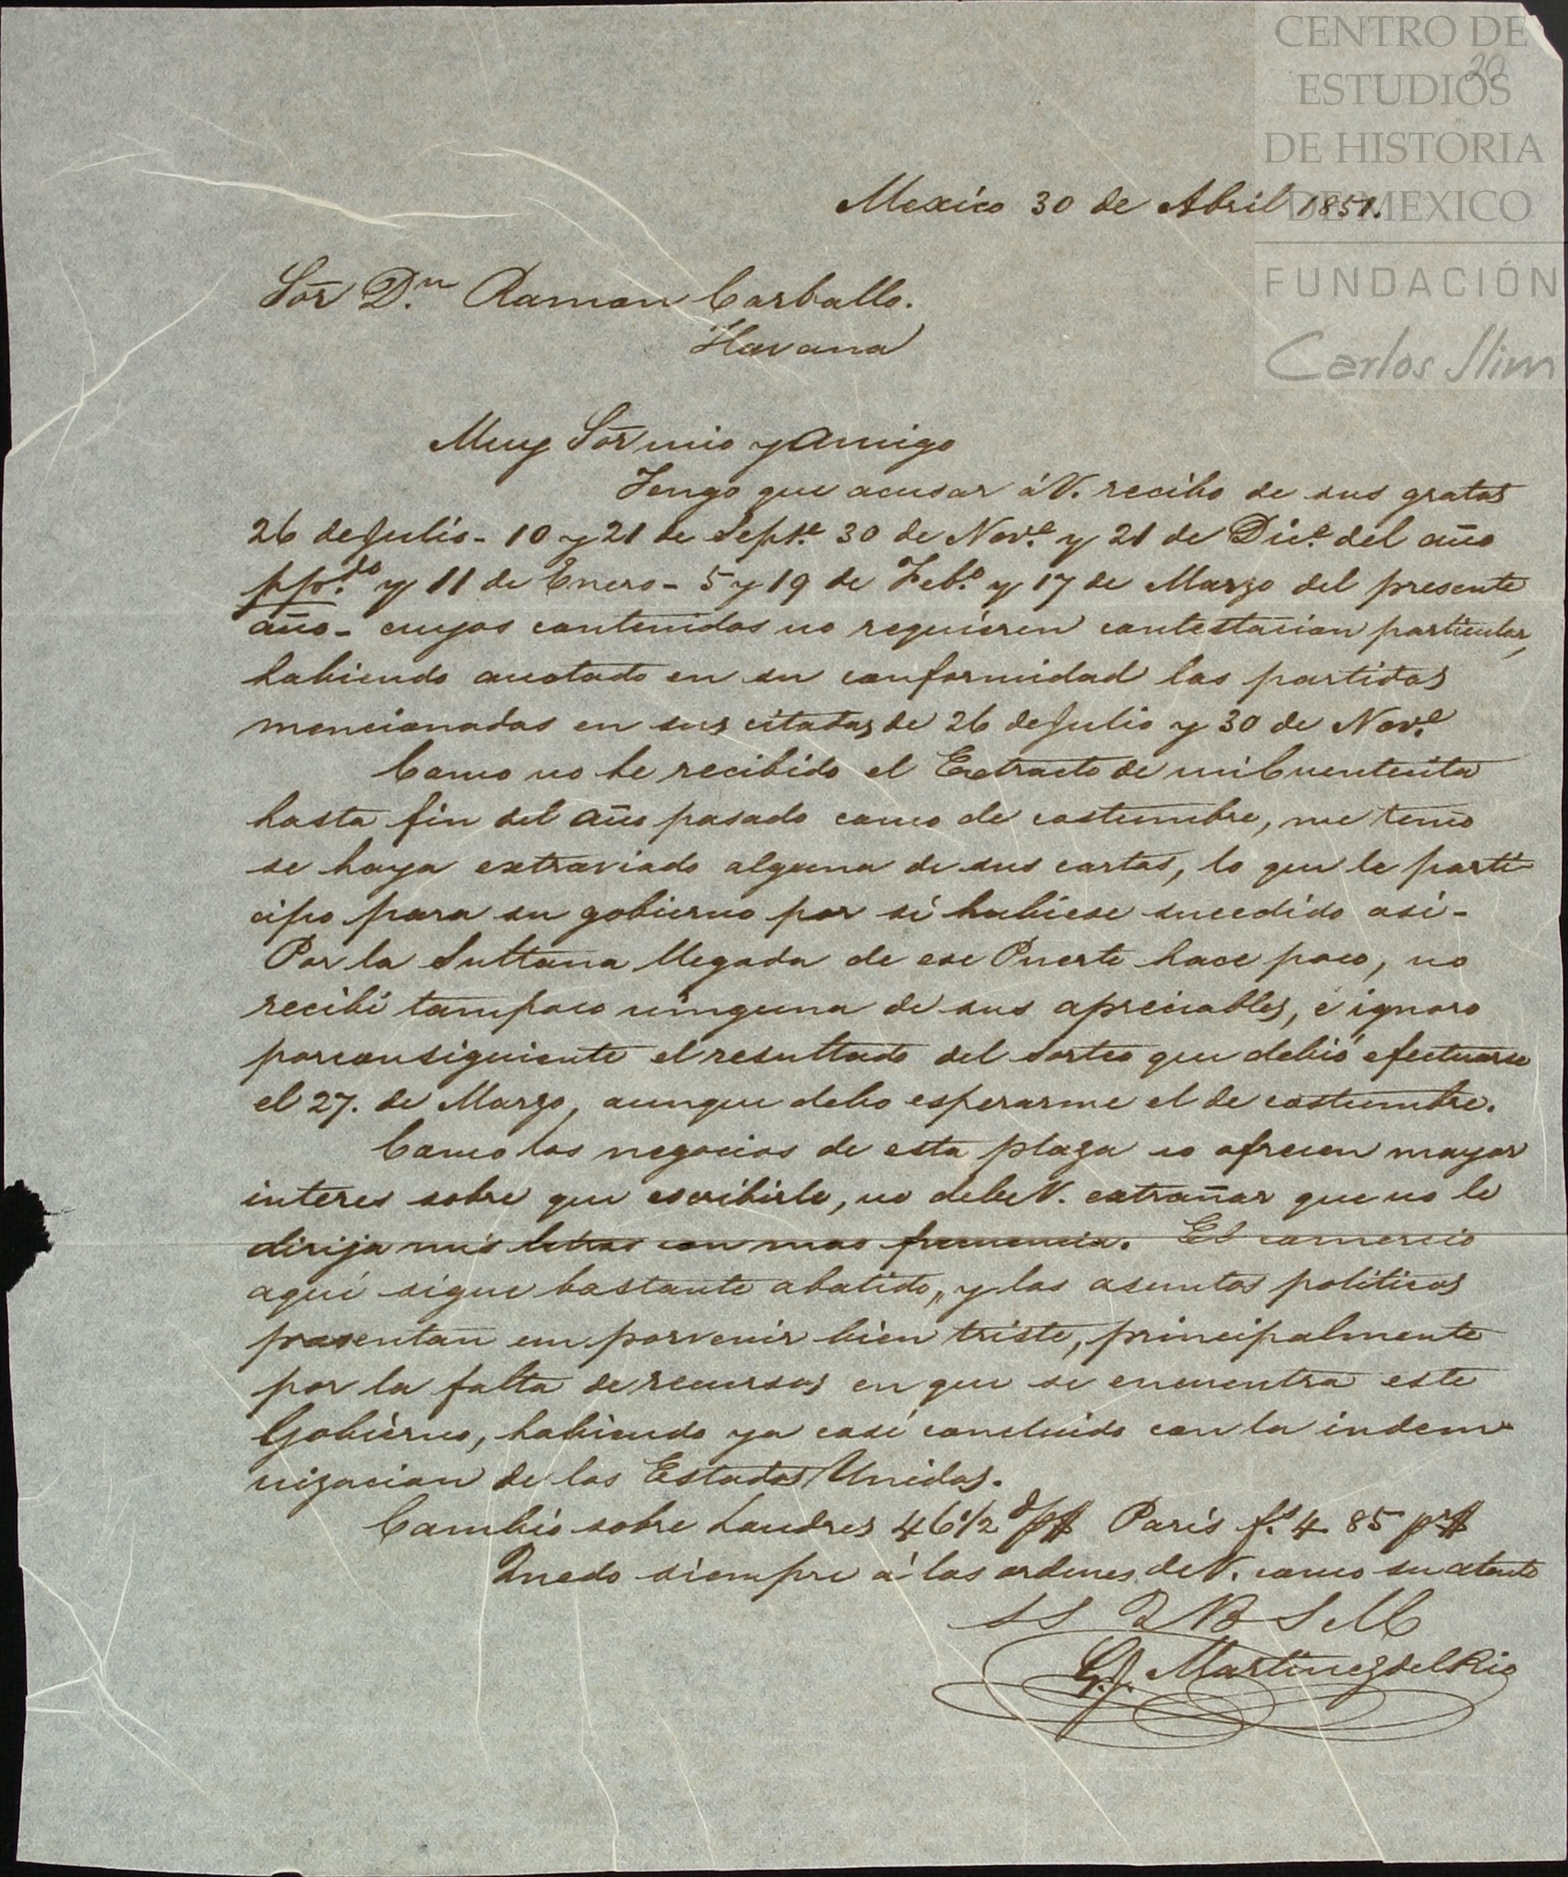 CENTRO DE
ESTUDIOS
DE HISTORIA
DE MEXICO
FUNDACIÓN
Carlos Slim
20
Mexico 30 de Abril 1851.
Sor D.n Ramon Carballo.
Havana
Muy Sor mio y amigo
Tengo que acusar á V. recibo de sus gratas
26 de Julio - 10 y 21 de Sept.e 30 de Nov.e y 21 de Dic.e del año
ppdo. y 11 de Enero - 5 y 19 de Feb.o y 17 de Marzo del presente
año - cuyos contenidos no requieren contestacion particular,
habiendo anotado en su conformidad las partidas
mencionadas en sus citadas de 26 de Julio y 30 de Nov.e
Como no he recibido el Extracto de mi Cuentecita
hasta fin del año pasado como de costumbre, me temo
se haya extraviado alguna de sus cartas, lo que le parti
cipo para su gobierno por si hubiese sucedido asi -
Por la Sultana llegada de ese Puerto hace poco, no
recibi tampoco ninguna de sus apreciables, é ignoro
porconsiguiente el resultado del sorteo que debió efectuarse
el 27. de Marzo, aunque debo esperarme el de costumbre.
Como los negocios de esta plaza no ofrecen mayor
interes sobre que escribirle, no debe V. extrañar que no le
dirija mis letras con mas frecuencia. El comercio
aquí sigue bastante abatido, y los asuntos politicos
presentan un porvenir bien triste, principalmente
por la falta de recursos en que se encuentra este
Gobierno, habiendo ya casi concluido con la indem
nizacion de los Estados Unidos.
Cambio sobre Londres 46 1/2 d p$ Paris f.s 4. 85 pr$
Quedo siempre á las ordenes de V. como su atento
S S Q B S M
G. J. Martinez del Rio